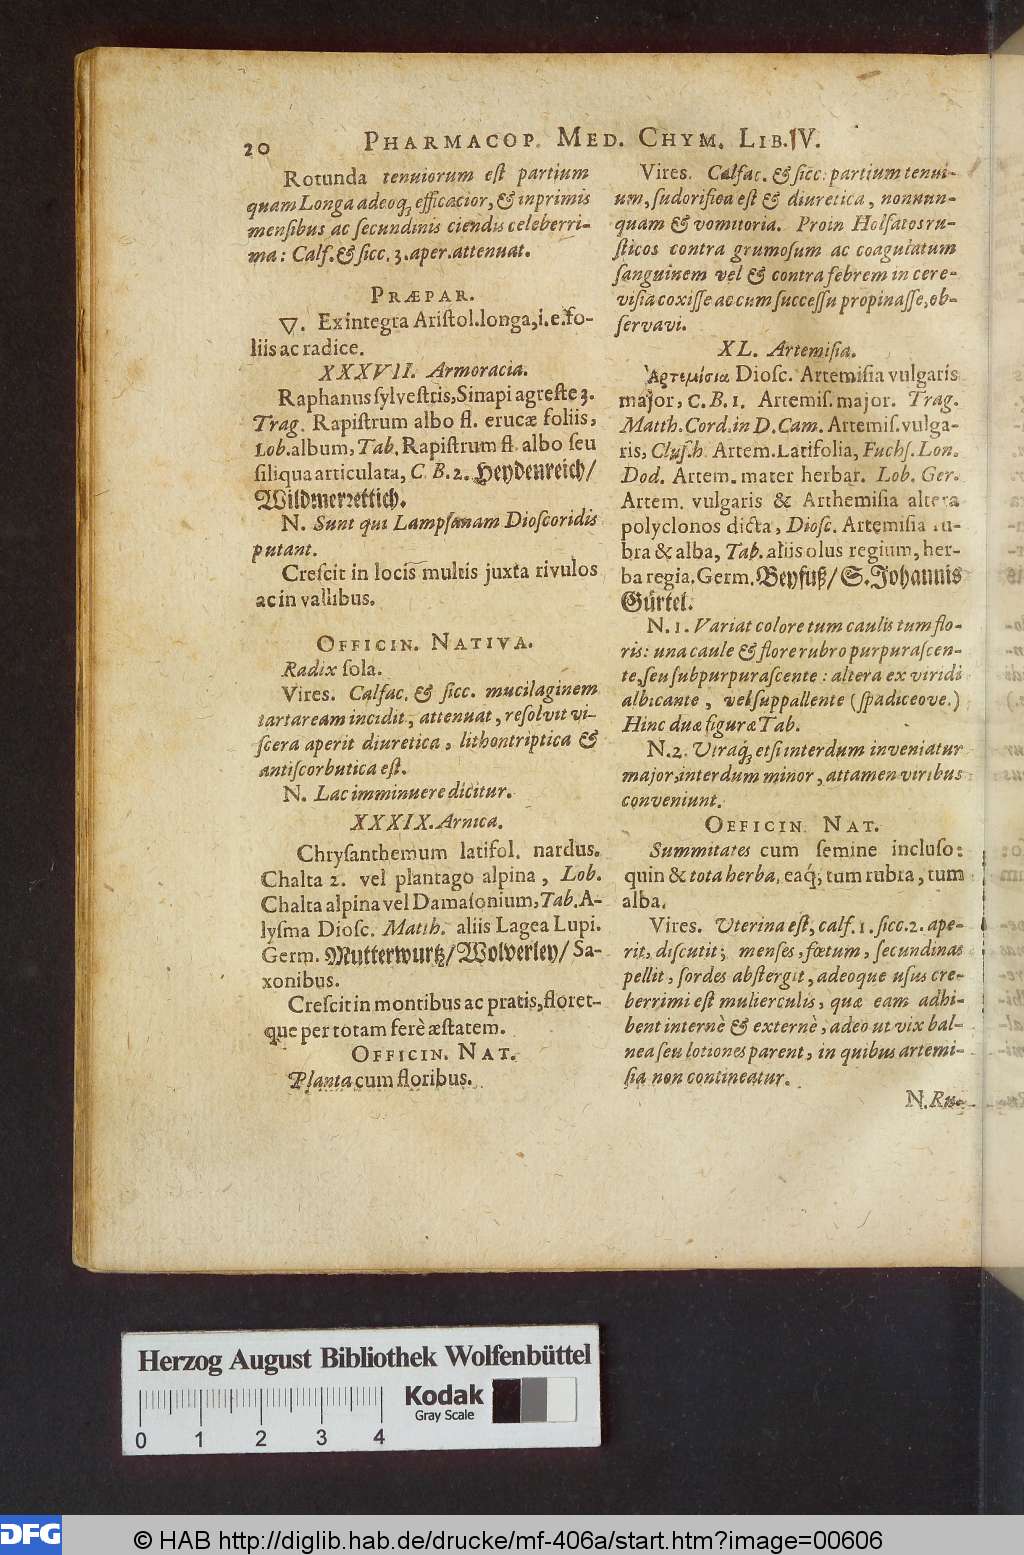 20 PHARMACOP. MED. CHYM. LIB. IV.
Rotunda tenuiorum est partium
quam Longa adeoq; efficacior, & inprimis
mensibus ac secundinis ciendis celeberri-
ma: Calf. & sicc. 3. aper. attenuat.
PRÆPAR.
▽. Ex integra Aristol. longa, i. e. fo-
liis ac radice.
XXXVIII. Armoracia.
Raphanus sylvestris, Sinapi agreste 3.
Trag. Rapistrum albo fl. erucæ foliis,
Lob. album, Tab. Rapistrum fl. albo seu
siliqua articulata, C. B. 2. Heydenreich/
Wildmerrettich.
N. Sunt qui Lampsanam Dioscoridis
putant.
Crescit in locis multis juxta rivulos
ac in vallibus.
OFFICIN. NATIVA.
Radix sola.
Vires. Calfac. & sicc. mucilaginem
tartaream incidit, attenuat, resolvit vi-
scera aperit diuretica, lithontriptica &
antiscorbutica est.
N. Lac imminuere dicitur.
XXXIX. Arnica.
Chrysanthemum latifol. nardus.
Chalta 2. vel plantago alpina, Lob.
Chalta alpina vel Damasonium, Tab. A-
lysma Diosc. Matth. aliis Lagea Lupi.
Germ. Mutterwurtz/ Wolverley/ Sa-
xonibus.
Crescit in montibus ac pratis, floret-
que per totam ferè æstatem.
OFFICIN. NAT.
Planta cum floribus.
Vires. Calfac. & sicc: partium tenui-
um, sudorifica est & diuretica, nonnun-
quam & vomitoria. Proin Holsatos ru-
sticos contra grumosum ac coagulatum
sanguinem vel & contra febrem in cere-
visia coxisse ac cum successu propinasse, ob-
servavi.
XL. Artemisia.
Ἀρτεμίσια Diosc. Artemisia vulgaris
major, C. B. 1. Artemis. major. Trag.
Matth. Cord. in D. Cam. Artemis. vulga-
ris, Clus. h. Artem. Latifolia, Fuchs. Lon.
Dod. Artem. mater herbar. Lob. Ger.
Artem. vulgaris & Arthemisia altera
polyclonos dicta, Diosc. Artemisia ru-
bra & alba, Tab. aliis olus regium, her-
ba regia. Germ. Beyfuß/ S. Johannis
Gürtel.
N. 1. Variat colore tum caulis tum flo-
ris: una caule & flore rubro purpurascen-
te, seu subpurpurascente: altera ex viridi
albicante, vel suppallente (spadiceove.)
Hinc duæ figuræ Tab.
N. 2. Utraq; etsi interdum inveniatur
major, interdum minor, attamen viribus
conveniunt.
OFFICIN. NAT.
Summitates cum semine incluso:
quin & tota herba, eaq; tum rubra, tum
alba.
Vires. Uterina est, calf. 1. sicc. 2. ape-
rit, discutit; menses, fœtum, secundinas
pellit, sordes abstergit, adeoque usus cre-
berrimi est mulierculis, quæ eam adhi-
bent internè & externè, adeo ut vix bal-
nea seu lotiones parent, in quibus artemi-
sia non contineatur.
N. Ru-
Herzog August Bibliothek Wolfenbüttel
Kodak
Gray Scale
0 1 2 3 4
DFG © HAB http://diglib.hab.de/drucke/mf-406a/start.htm?image=00606